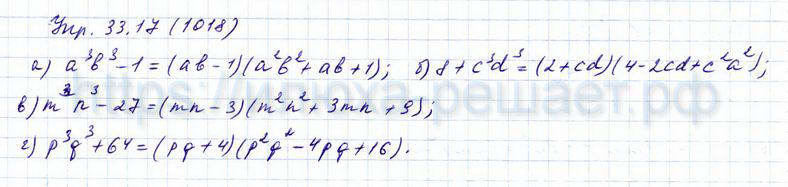 Упр. 33.17 (1018)
а) a³b³-1=(ab-1)(a²b²+ab+1); б) 8+c³d³=(2+cd)(4-2cd+c²a²);
в) m³n³-27=(mn-3)(m²n²+3mn+9);
г) p³q³+64=(pq+4)(p²q²-4pq+16).